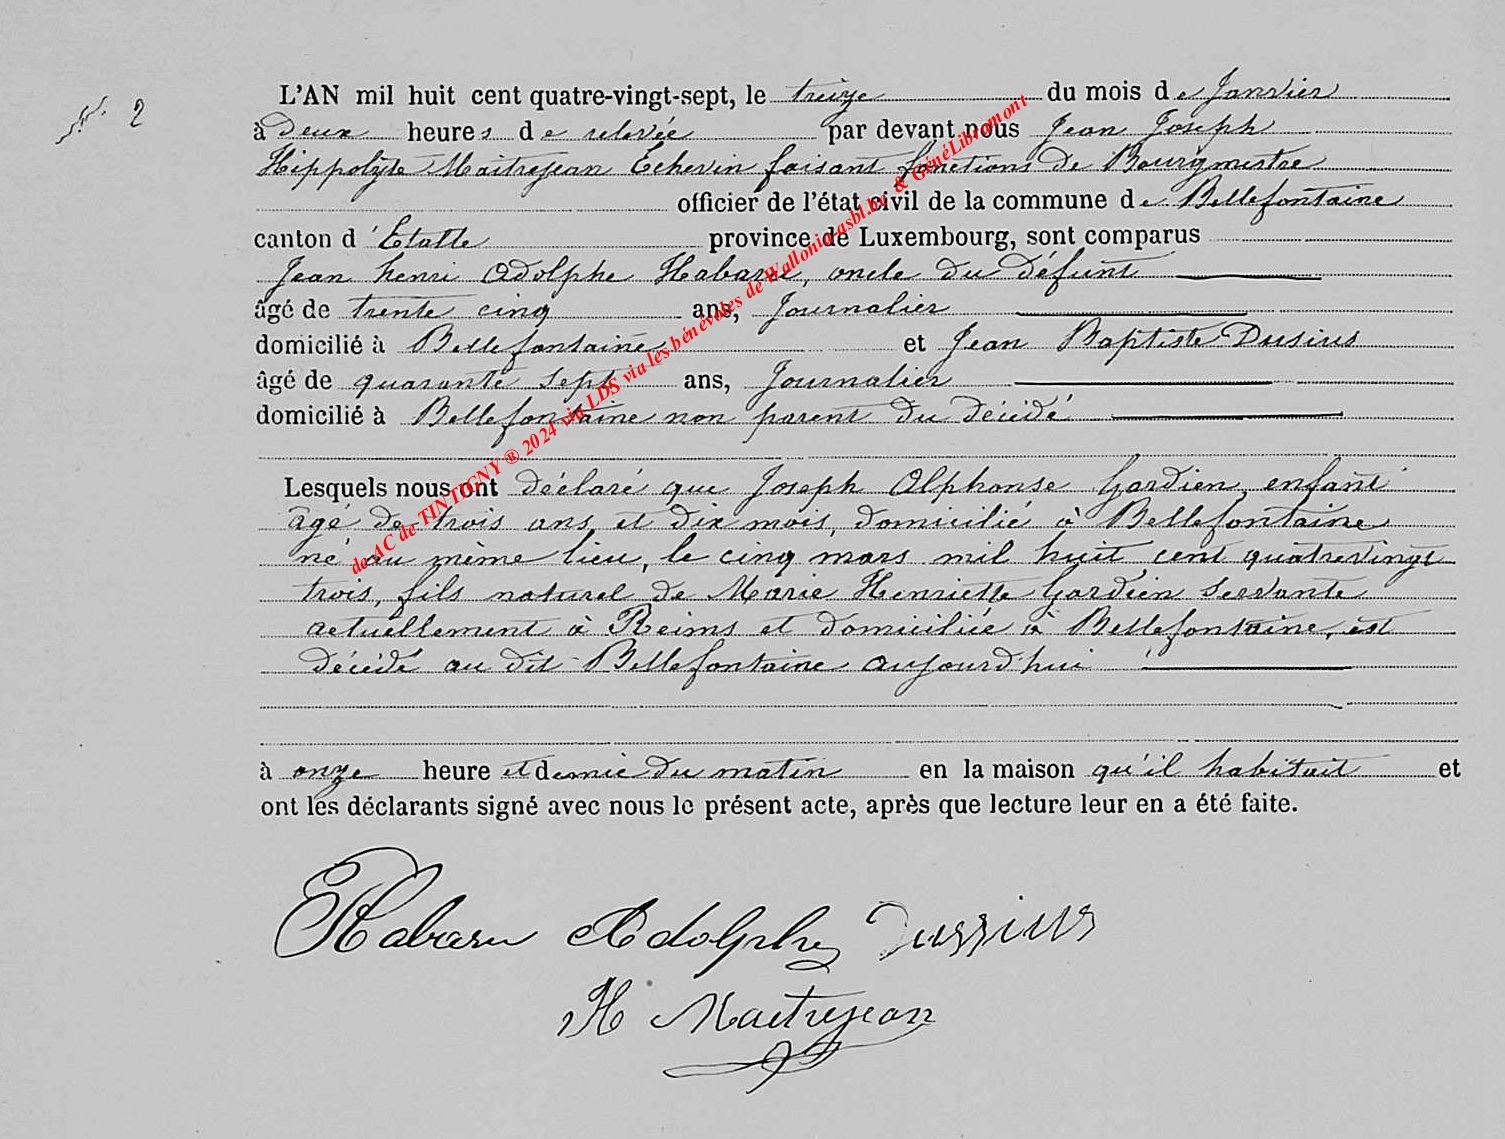 N°. 2
L'AN mil huit cent quatre-vingt-sept, le treize du mois de Janvier
à deux heures de relevée par devant nous Jean Joseph
Hippolyte Maitrejean Echevin faisant fonctions de Bourgmestre
officier de l'état civil de la commune de Bellefontaine
canton d'Etalle province de Luxembourg, sont comparus
Jean henri Adolphe Habaru, oncle du défunt
âgé de trente cinq ans, Journalier
domicilié à Bellefontaine et Jean Baptiste Dusius
âgé de quarante sept ans, Journalier
domicilié à Bellefontaine non parent du décédé
Lesquels nous ont déclaré que Joseph Alphonse Gardien, enfant
âgé de trois ans et dix mois, domicilié à Bellefontaine
né au même lieu, le cinq mars mil huit cent quatrevingt
trois, fils naturel de Marie Henriette Gardien servante
actuellement à Reims et domiciliée à Bellefontaine, est
décédé au dit Bellefontaine aujourd'hui
à onze heure et demie du matin en la maison qu'il habitait et
ont les déclarants signé avec nous le présent acte, après que lecture leur en a été faite.
Habaru Adolphe Dussius
H Maitrejean
de AC de TINTIGNY ® 2024 via LDS via les bénévoles de Wallonia-asbl.be & GénéLibramont